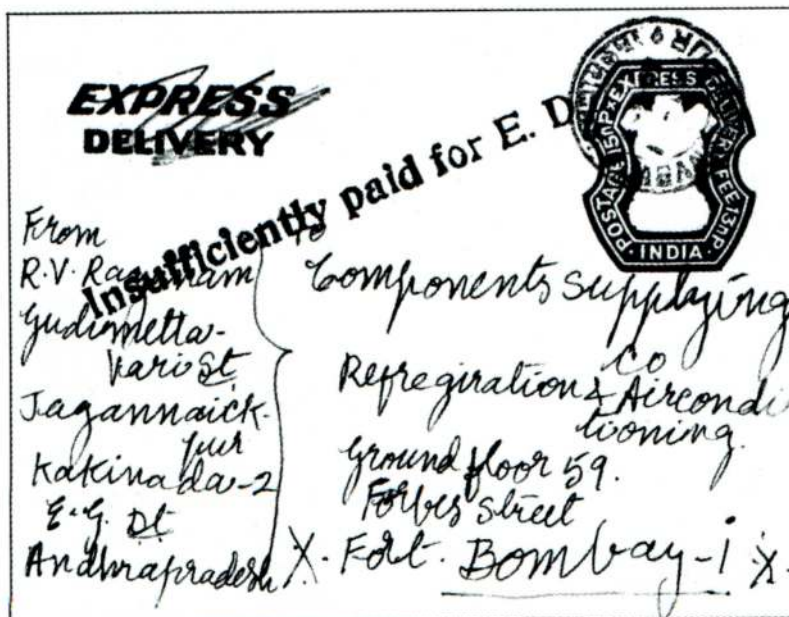 EXPRESS
DELIVERY
Insufficiently paid for E. D
POSTAGE 15nP × EXPRESS DELIVERY FEE 13nP.
INDIA
From
R.V.
Gudimetta-
vari St
Jagannaick-
pur
Kakinada-2
E.G. Dt
Andhrapradesh
To
Components Supplaying
Co
Refregiration & Aircondi
tioning.
Ground floor 59.
Forbes Street
X. Fort. Bombay-1 X.